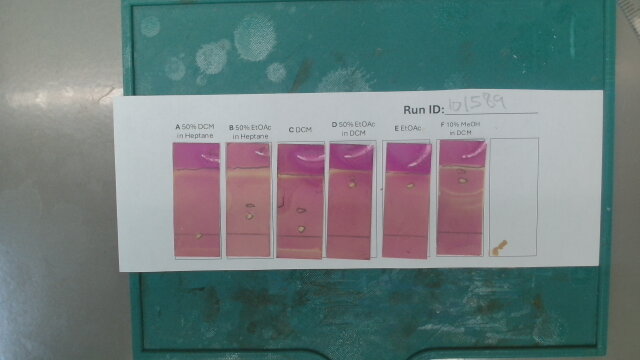 Run ID: 101589
A 50% DCM
in Heptane
B 50% EtOAc
in Heptane
C DCM
D 50% EtOAc
in DCM
E EtOAc
F 10% MeOH
in DCM